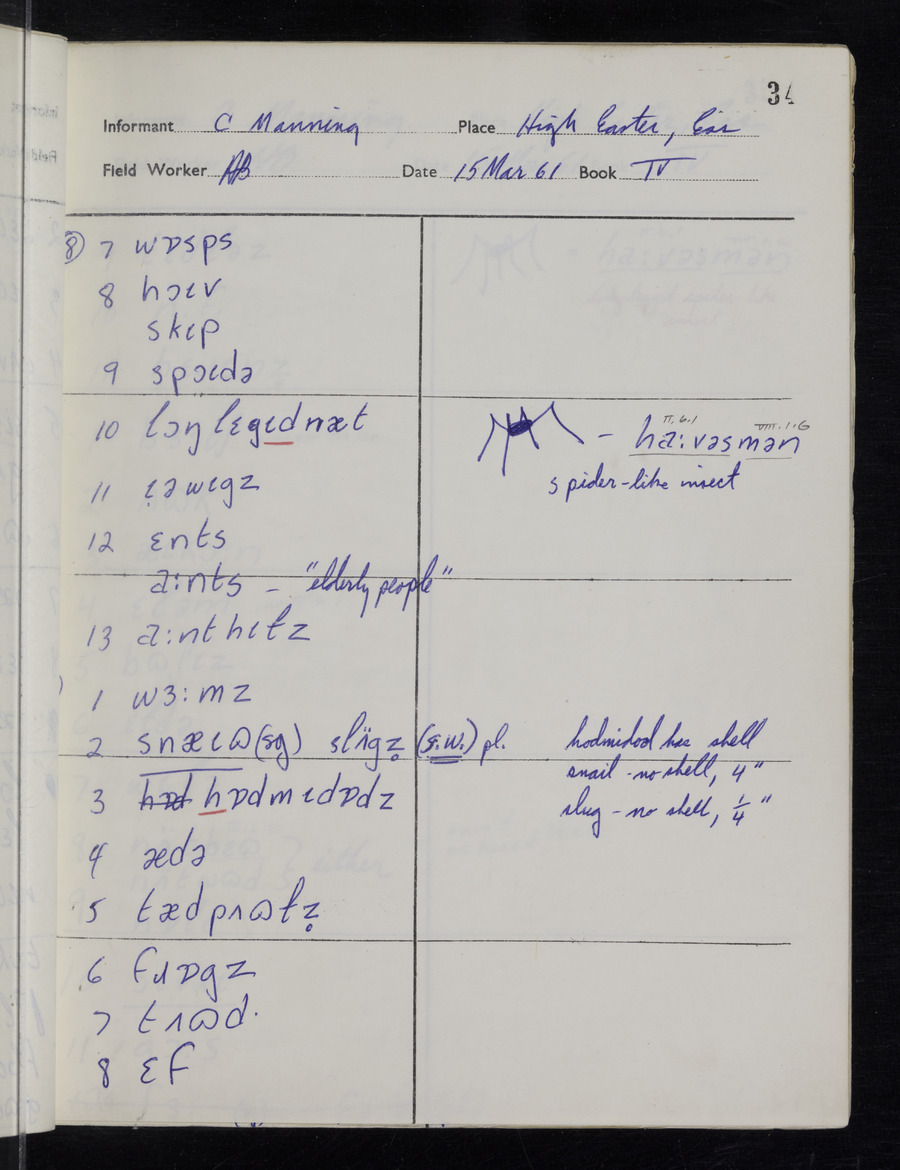 34
Informant C Manning Place High Easter, Ess
Field Worker AB Date 15 Mar 61 Book IV
8) 7 wɒsps
8 hɔɩv
skɩp
9 spɔɩdə
10 lɔŋlɛgɩdnæt
II. 6.1 VIII. 1.6
– ha:vəsmən
spider-like insect
11 ɩəwɩgz
12 ɛnts
a:nts – "elderly people"
13 a:nthɩɫz
1 wɜ:mz
2 snæɩɷ(sg) slʌ̈gz̥ (s.w.) pl.
hodmidod has shell
snail - no shell, 4"
slug - no shell, 1/4"
3 hɒd hɒdmɩdɒdz
4 ædə
5 tædpʌɷɫz̥
6 fɹɒgz
7 tʌɷd.
8 ɛf